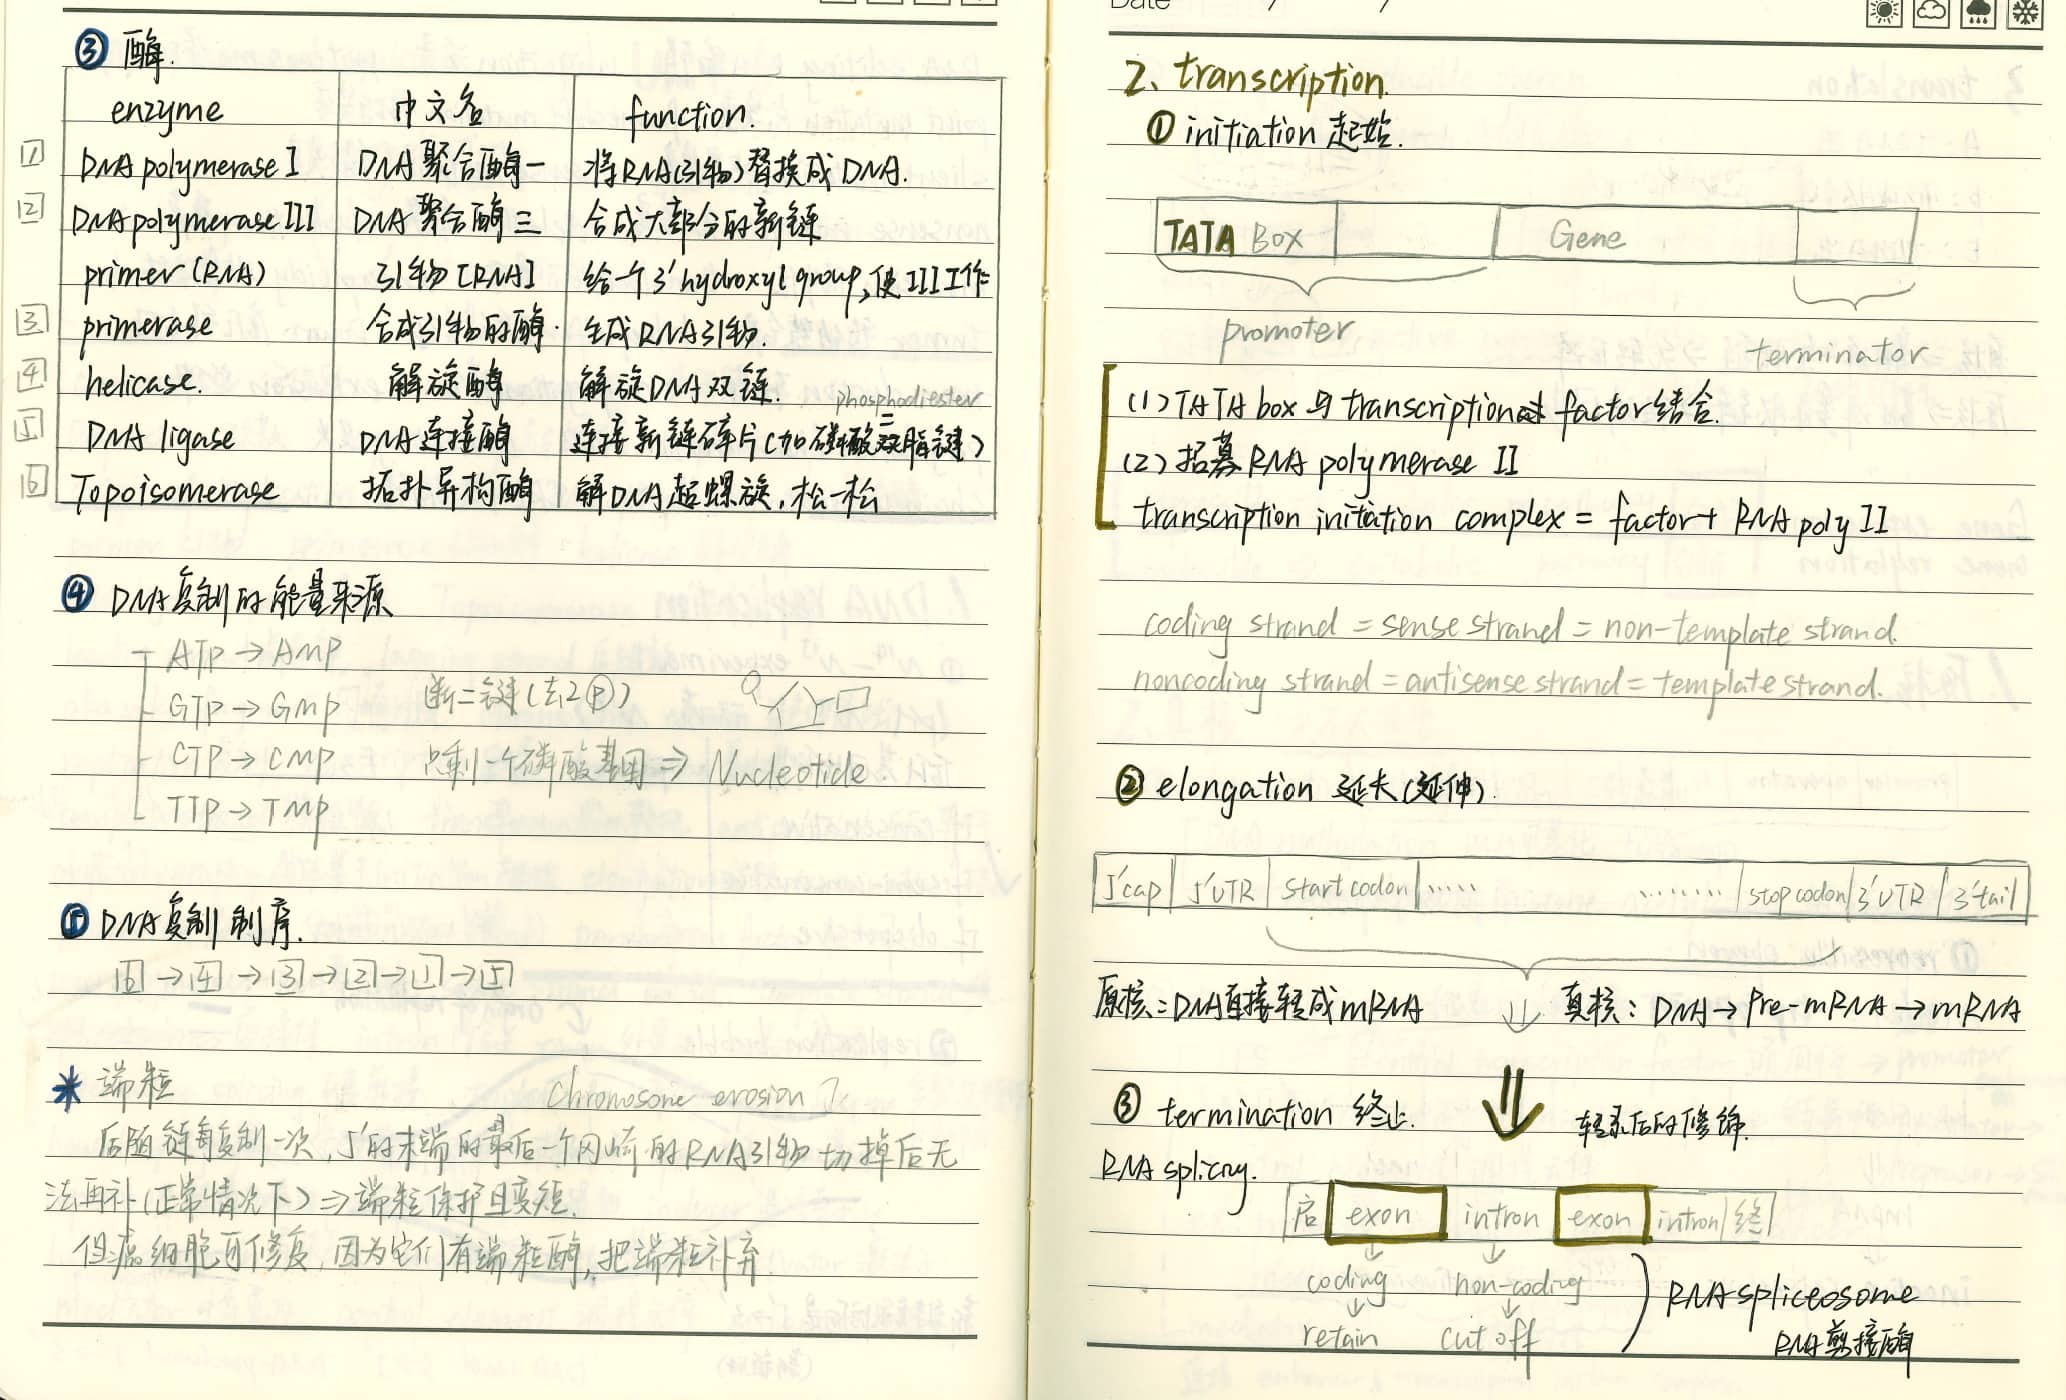 ③ 酶.
enzyme 中文名 function.
1 DNA polymerase I DNA聚合酶一 将RNA(引物)替换成DNA.
2 DNA polymerase III DNA聚合酶三 合成大部分的新链
primer (RNA) 引物[RNA] 给一个3' hydroxyl group, 使III工作
3 primerase 合成引物的酶. 生成RNA引物.
4 helicase. 解旋酶 解旋DNA双链.
phosphodiester
5 DNA ligase DNA连接酶 连接新链碎片(加磷酸二酯键)
6 Topoisomerase 拓扑异构酶 解DNA超螺旋,松一松
④ DNA复制的能量来源
ATP → AMP
GTP → GMP 断二键(去2Ⓟ)
CTP → CMP 只剩一个磷酸基团 ⇒ Nucleotide
TTP → TMP
⑤ DNA复制制序.
6 → 4 → 3 → 2 → 1 → 5
* 端粒 Chromosome erosion
后随链每复制一次, 5'的末端的最后一个冈崎的RNA引物切掉后无
法再补(正常情况下) ⇒ 端粒保护且变短.
但癌细胞可修复, 因为它们有端粒酶, 把端粒补齐.
Date / /
2、transcription.
① initiation 起始.
TATA Box Gene
promoter
terminator
(1) TATA box 与 transcription factor 结合.
(2) 招募 RNA polymerase II
transcription initation complex = factor + RNA poly II
coding strand = sense strand = non-template strand.
noncoding strand = antisense strand = template strand.
② elongation 延长(延伸).
5'cap 5'UTR start codon ..... ........ stop codon 3'UTR 3'tail
原核: DNA直接转成mRNA ⇓ 真核: DNA → Pre-mRNA → mRNA
③ termination 终止. ⇓ 转录后的修饰.
RNA splicing.
启 exon intron exon intron 终
coding non-coding RNA spliceosome
retain cut off RNA剪接酶